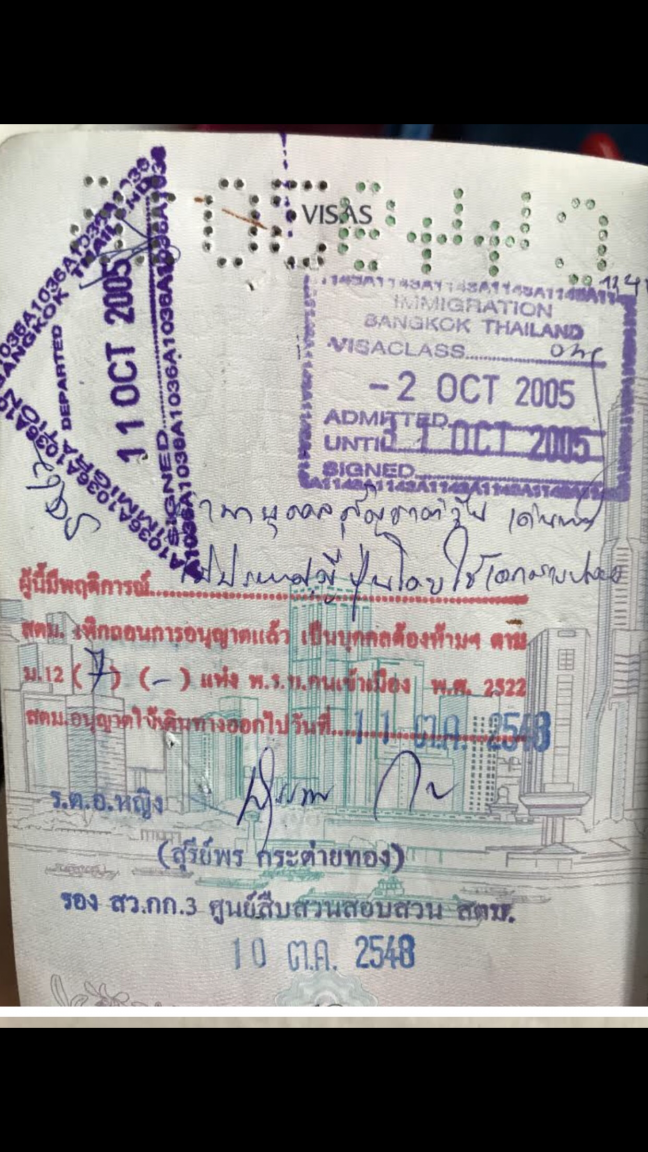 VISAS
A1036A1036A1036A1036A1036
BANGKOK THAILAND
DEPARTED
11 OCT 2005
SIGNED
IMMIGRATION
A1148A1148A1148A1148A1148A11
IMMIGRATION
BANGKOK THAILAND
VISACLASS
-2 OCT 2005
ADMITTED
UNTIL 31 OCT 2005
SIGNED
A1148A1148A1148A1148A1148A11
ไปประเทศญี่ปุ่นโดยใช้เอกสารปลอม
ผู้นี้มีพฤติการณ์
สตม. เพิกถอนการอนุญาตแล้ว เป็นบุคคลต้องห้ามฯ ตาม
ม.12 (7) (-) แห่ง พ.ร.บ.คนเข้าเมือง พ.ศ. 2522
สตม.อนุญาตให้เดินทางออกไปวันที่ 11 ต.ค. 2548
ร.ต.อ.หญิง
(สุรีย์พร กระต่ายทอง)
รอง สว.กก.3 ศูนย์สืบสวนสอบสวน สตม.
10 ต.ค. 2548